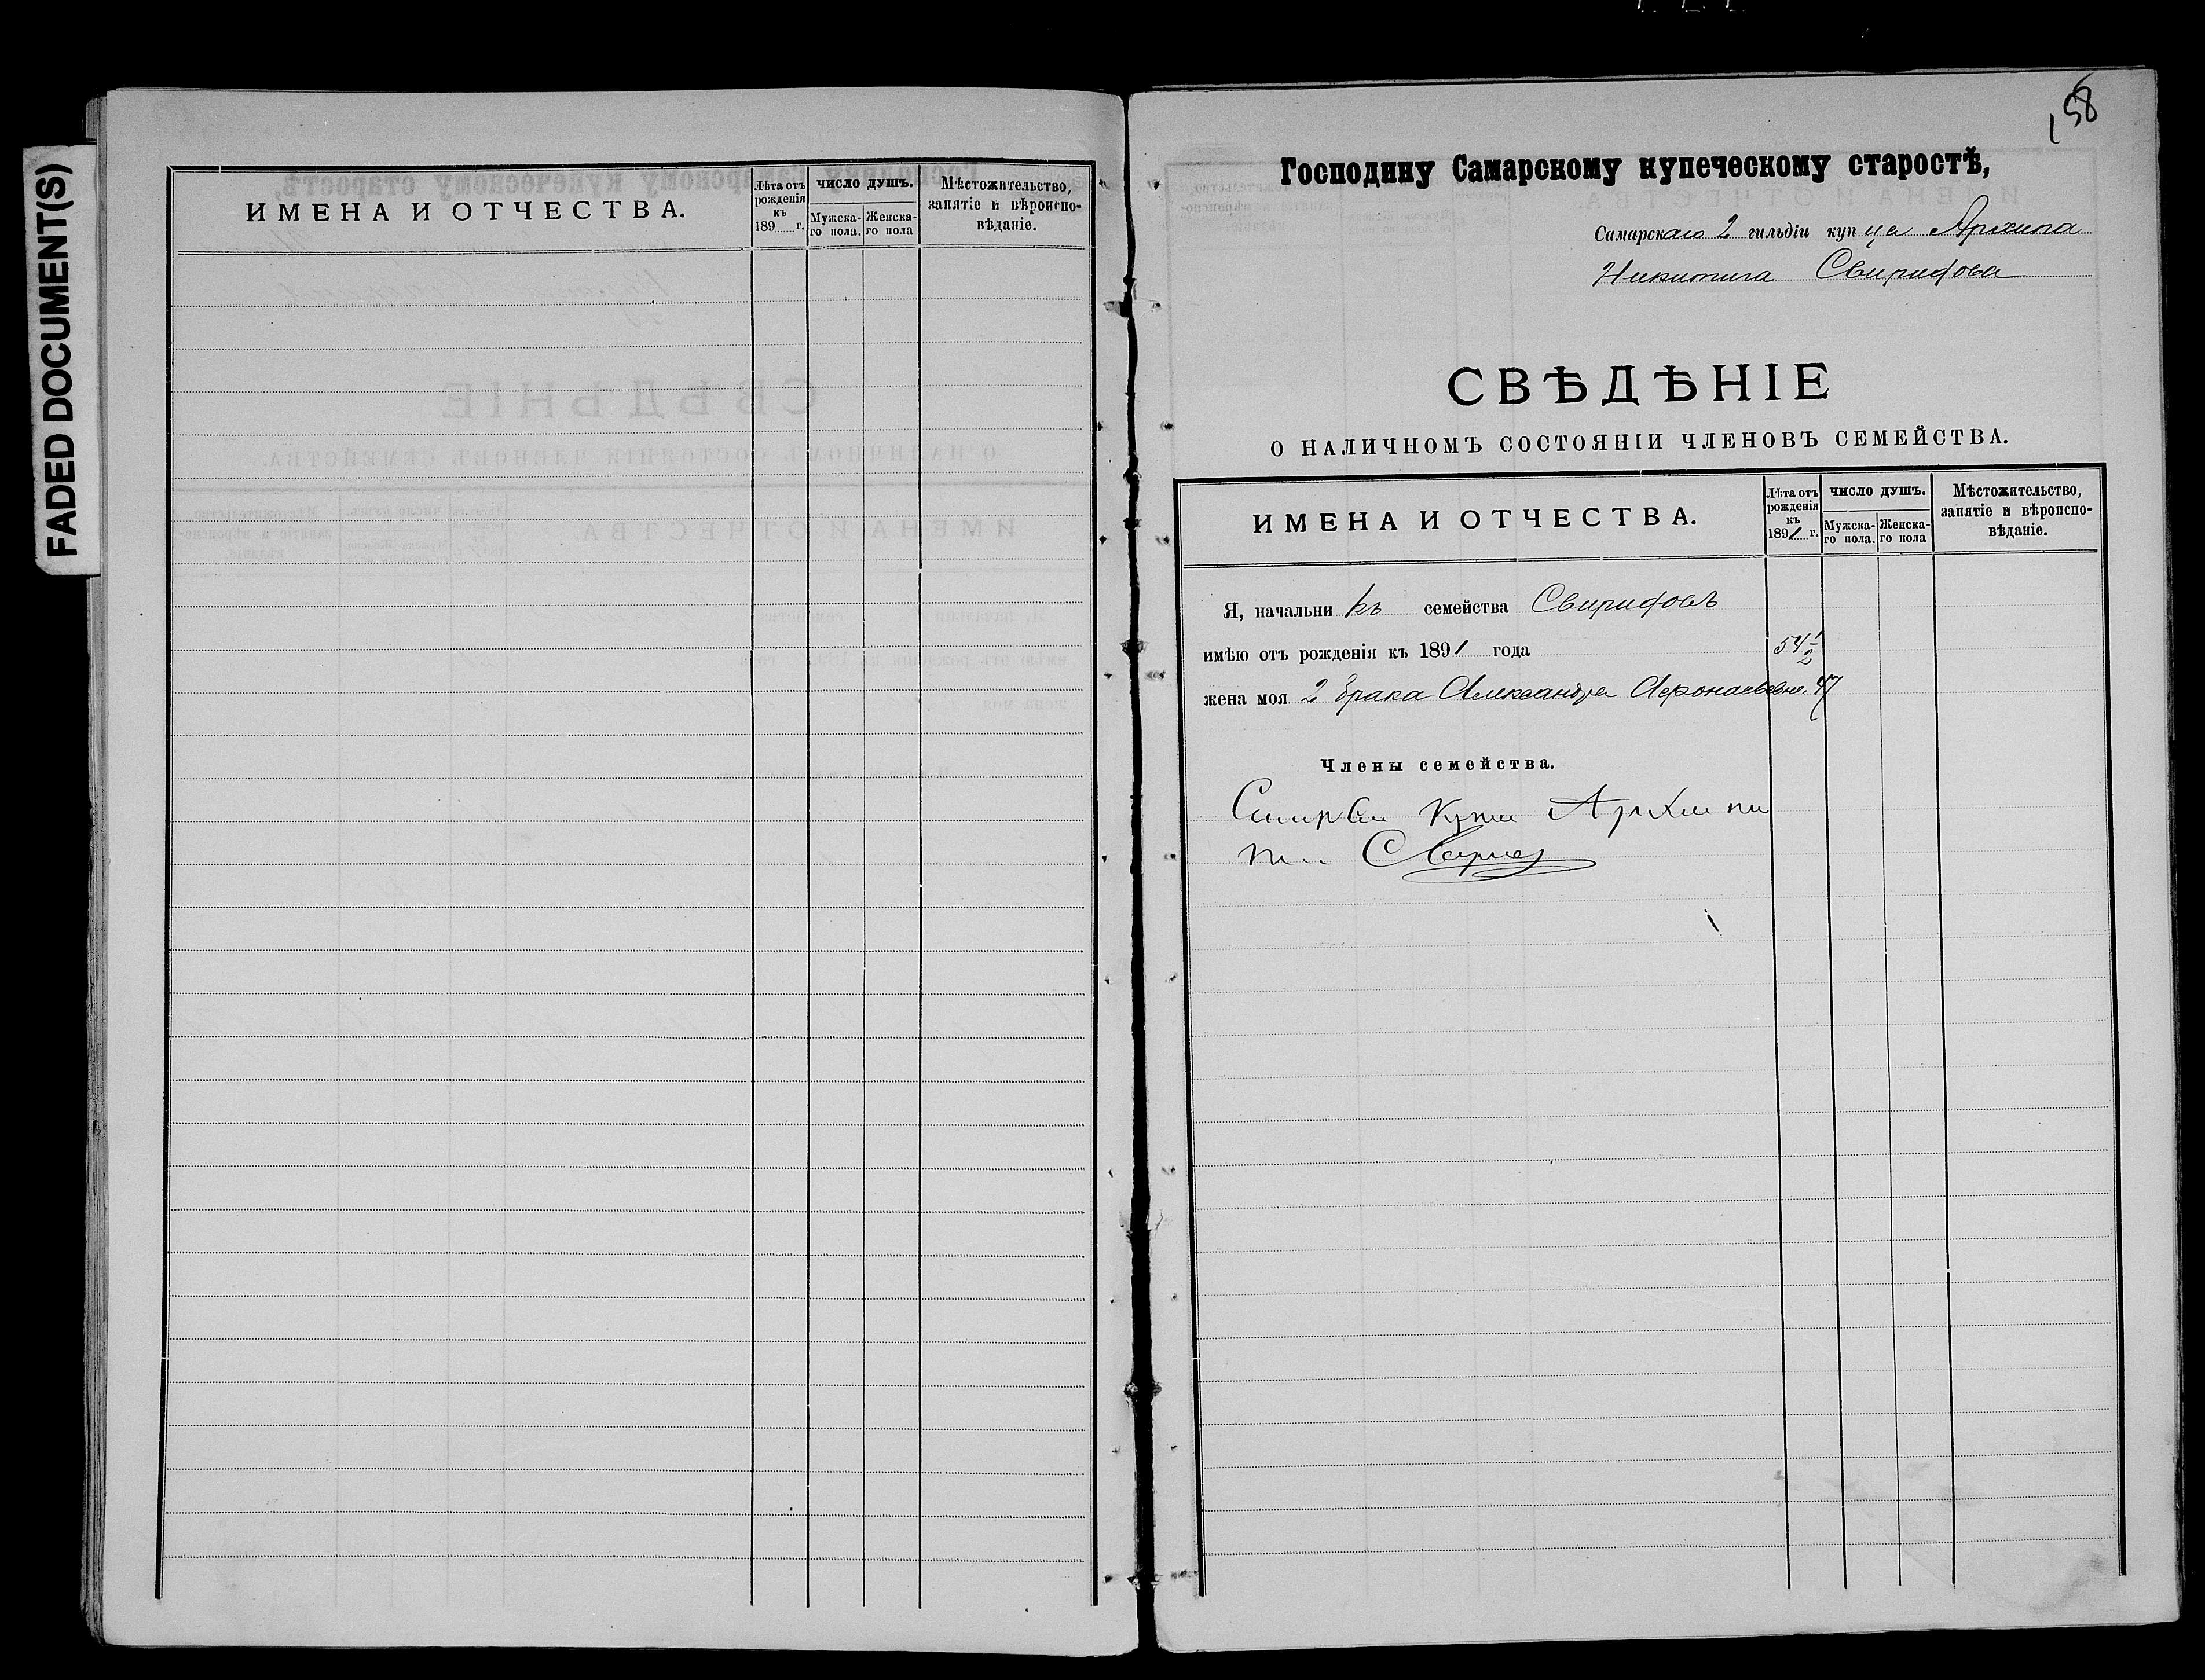 FADED DOCUMENT(S)
ИМЕНА И ОТЧЕСТВА.
Лѣта отъ рожденія къ 189 г.
ЧИСЛО ДУШЪ.
Мужска-го пола.
Женска-го пола
Мѣстожительство, занятіе и вѣроиспо-вѣданіе.
158
Господину Самарскому купеческому старостѣ,
Самарскаго 2 гильдіи купца Архипа
Никитина Свиридова
СВѢДѢНІЕ
О НАЛИЧНОМЪ СОСТОЯНІИ ЧЛЕНОВЪ СЕМЕЙСТВА.
ИМЕНА И ОТЧЕСТВА.
Лѣта отъ рожденія къ 1891 г.
ЧИСЛО ДУШЪ.
Мужска-го пола.
Женска-го пола
Мѣстожительство, занятіе и вѣроиспо-вѣданіе.
Я, начальникъ семейства Свиридовъ
имѣю отъ рожденія къ 1891 года 54 1/2
жена моя 2 брака Александра Афонасьевна. 47
Члены семейства.